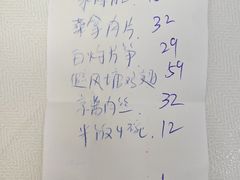 肉片 32
白灼片笋 29
避风塘鸡翅 59
京酱肉丝 32
米饭4碗 12